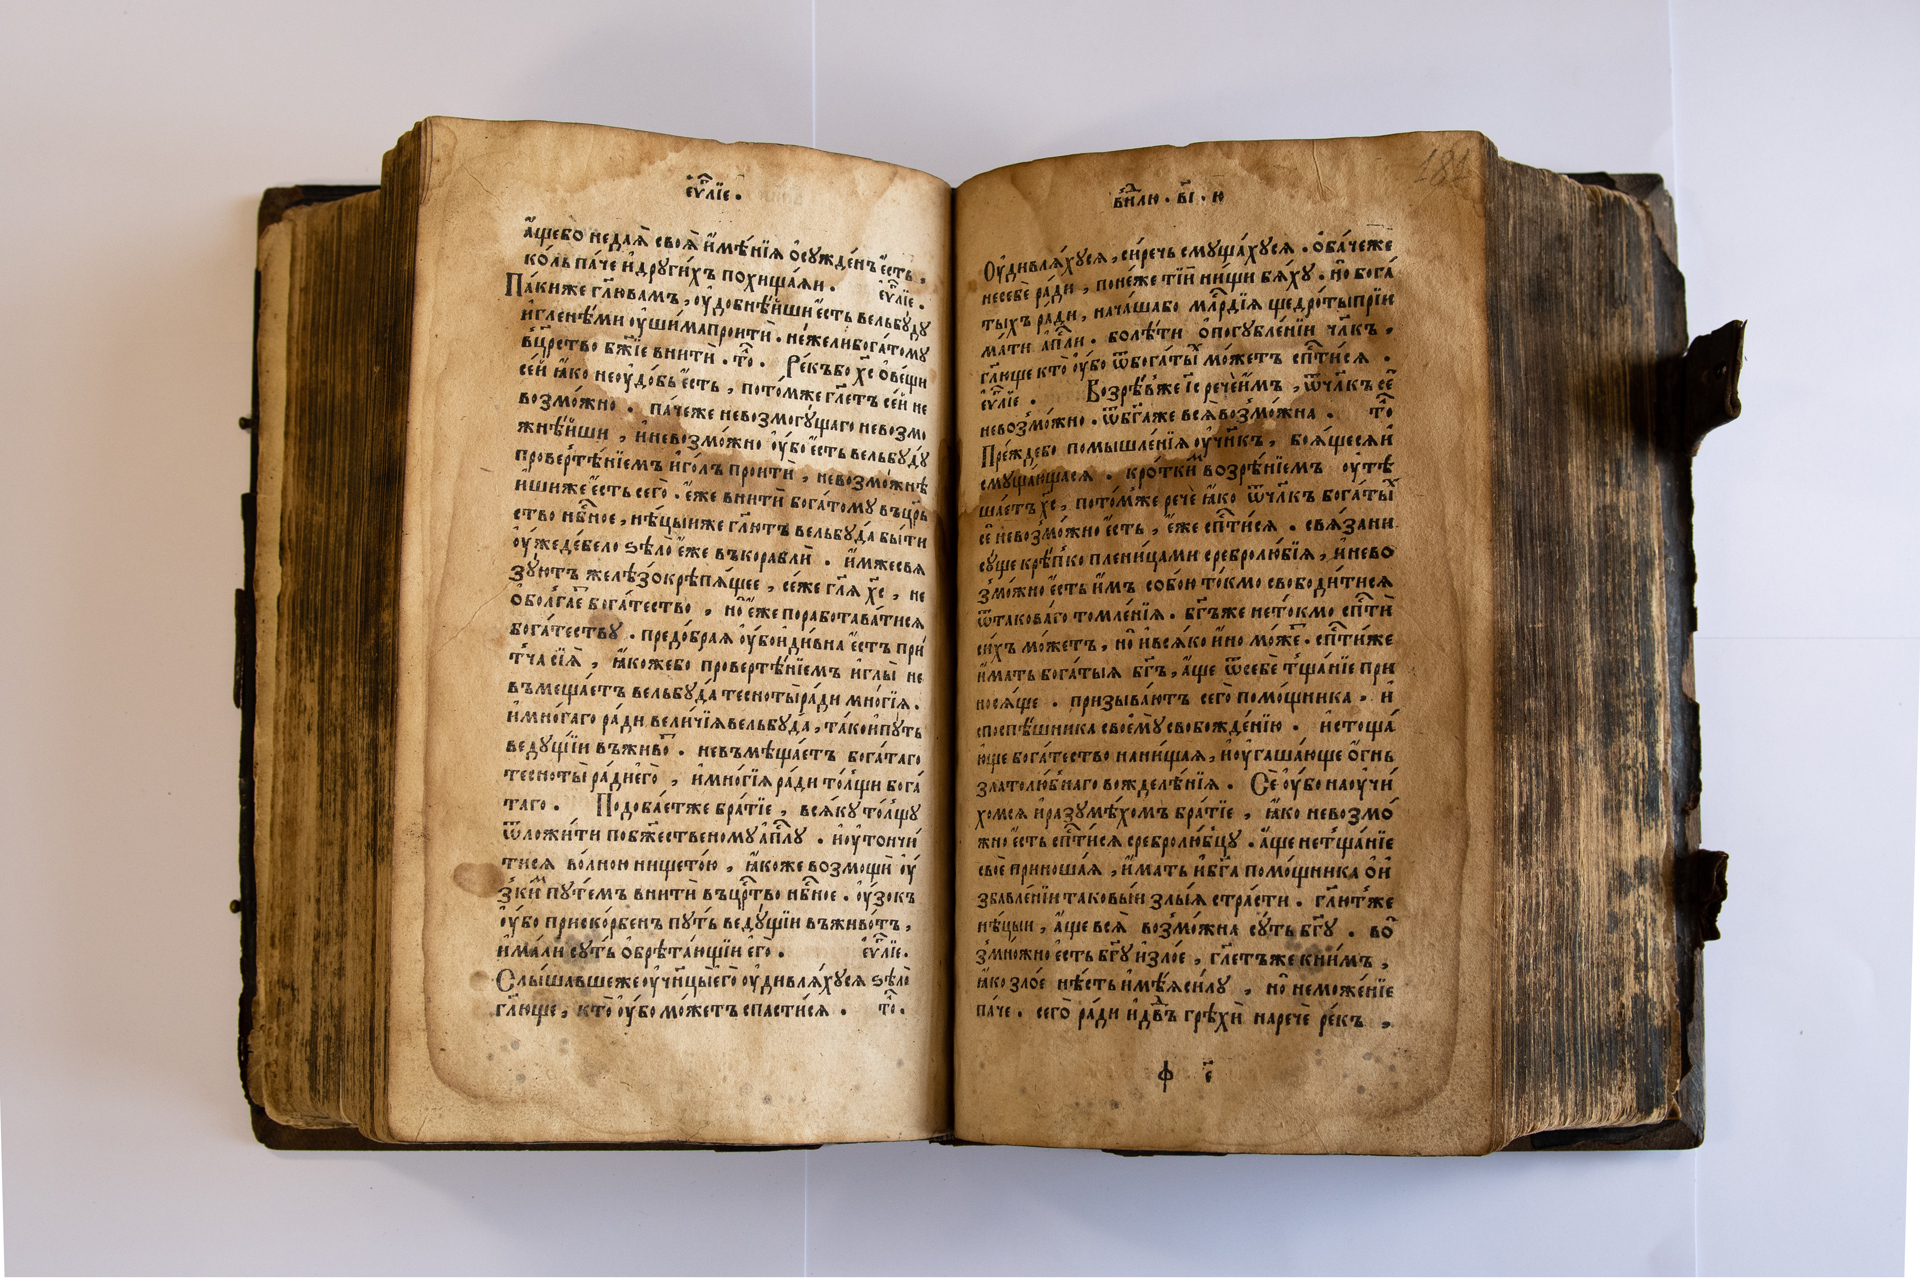 е҆ѵⷢ҇лїе .
а҆́щебо̀ недаѧ̀ своѧ̀ и҆мѣ́нїѧ ѡ҆сꙋжде́нъ є҆́сть ,
ко́ль па́че и҆дрꙋги́хъ похища́ѧи . е҆ѵⷢ҇лїе .
Па́киже гл҃ювамъ , ᲂу҆до́бнѣ́йши є҆́сть вельбꙋ́дꙋ
и҆глены́ми ᲂу҆ши́мапроитѝ . не́желибога́томꙋ
вцрⷭ҇тво бж҃їе внитѝ . то̑ . Ре́къбо хс҃ ѡ҆ве́щи
се́й ꙗ҆́ко неᲂу҆до́бь є҆́сть , пото́мже гл҃етъ се́й не
возмо́жно . па́чеже невозмогꙋ́щаго невозмо
жнѣ́йши , и҆невозмо́жно ᲂу҆́бо є҆́сть вельбꙋ́дꙋ
проверте́нїемъ и҆го́лъ проитѝ , невозмо́жнѣ
йшиже є҆́сть сего̀ . є҆́же внитѝ бога́томꙋ въцрⷭ҇ь
ство нбⷭ҇ное , нѣ́цыиже гл҃ютъ вельбꙋ́да бы́ти
ᲂу҆́жеде́бело ѕѣлѡ̀ є҆́же въкораблѝ . и҆́мжесвѧ
зꙋ́ютъ желѣ́зокрѣпѧ́щее , се́же гл҃ѧ хс҃ , не
ѡ҆болга́е бога́тество , но̀ є҆́же поработава́тисѧ
бога́тествꙋ . предо́браѧ ᲂу҆́бои҆ди́вна є҆́сть при́
тча сїѧ̀ , ꙗ҆́кожебо проверте́нїемъ и҆глы̀ не
въмеща́етъ вельбꙋ́да тесноты̀ра́ди мно́гїѧ .
и҆мно́гаго ра́ди вели́чїѧвельбꙋ́да , та́кои҆пꙋ́ть
ведꙋ́щїи въживо̑ . невъмѣща́етъ бога́таго
тесноты̀ ра́диего̀ , и҆мно́гїѧ ра́ди то́лщи бога́
таго . Подоба́етже бра́тїе , всѧ́кꙋ то́лщꙋ
ѿложи́ти побжⷭ҇ественомꙋ а҆пⷭ҇лꙋ . и҆ᲂу҆тончи́
тисѧ во́лною нището́ю , ꙗ҆́коже возмощѝ ᲂу҆́
зкиⷨ пꙋте́мъ внитѝ въцрⷭ҇тво нбⷭ҇ное . ᲂу҆́зокъ
ᲂу҆́бо приско́рбенъ пꙋ́ть ведꙋ́щїи въживо́тъ ,
и҆ма́ли сꙋ́ть ѡ҆брѣта́ющїи е҆го̀ . е҆ѵⷢ҇лїе .
Слы́шавшежеᲂу҆чн҃цые҆го̀ ᲂу҆дивлѧ́хꙋсѧ ѕѣлѡ̀
гл҃юще , кто̀ ᲂу҆́бо мо́жетъ спасти́сѧ . то̑ .
внⷣлю . в҃і . ю
181
Оу҆дивлѧ́хꙋсѧ , си́речь смꙋща́хꙋсѧ . ѡ҆ба́чеже
несебѐ ра́ди , поне́же тїѝ ни́щи бѧ́хꙋ . но̀ бога́
тыхъ ра́ди , нача́шабо мⷧ҇рдїѧ щедро́тыпрїи
ма́ти а҆пⷭ҇ли . болѣ́ти ѡ҆погꙋбле́нїи чл҃къ ,
гл҃юще кто̀ ᲂу҆́бо ѿбога́тыⷯ мо́жетъ спⷭ҇ти́сѧ .
е҆ѵⷢ҇лїе . Возрѣ́вже і҆с҃ речѐи҆́мъ , ѿчл҃къ сѐ
невозмо́жно . ѿбг҃аже всѧ̀возмо́жна . то̑
Пре́ждебо помышле́нїѧ ᲂу҆чн҃къ , боѧ́щесѧи҆
смꙋща́ющасѧ . кро́ткиⷨ возрѣ́нїемъ ᲂу҆тѣ
ша́етъ хс҃ , пото́мже речѐ ꙗ҆́ко ѿчл҃къ бога́тыⷯ
сѐ невозмо́жно є҆́сть , є҆́же спⷭ҇ти́сѧ . свѧ́зани
сꙋ́ще крѣ́пко плени́цами сребролю́бїѧ , и҆нево
змо́жно є҆́сть и҆́мъ собо́ю то́кмо свободи́тисѧ
ѿтакова́го томле́нїѧ . бг҃ъже нето́кмо спⷭ҇тѝ
си́хъ мо́жетъ , но̀ и҆всѧ́ко и҆́но мо́же . спⷭ҇ти́же
и҆́мать бога́тыѧ бг҃ъ , а҆́ще ѿсебѐ тща́нїе при
носѧ́ще . призыва́ютъ сего̀ помо́щника , и҆
споспѣ́шника своемꙋ̀ свобожде́нїю . и҆стоща́
юще бога́тество нани́щаѧ , и҆ᲂу҆гаша́юще ѻ҆́гнь
златолю́бнаго вожделѣ́нїѧ . Сѐ ᲂу҆́бо наᲂу҆чи́
хомсѧ и҆разꙋмѣ́хомъ бра́тїе , ꙗ҆́ко невозмо́
жно є҆́сть спⷭ҇ти́сѧ сребролю́бцꙋ . а҆́ще нетща́нїе
своѐ приноша́ѧ , и҆́мать и҆бг҃а помо́щника ѡ҆и҆
збавле́нїи таковы́и злы́ѧ стра́сти . гл҃ю́тже
нѣ́цыи , а҆́ще всѧ̀ возмо́жна сꙋ́ть бг҃ꙋ . во̑
змо́жно є҆́сть бг҃ꙋ и҆зло́е , гл҃етъже кни́мъ ,
ꙗ҆́ко зло́е нѣ́сть и҆мѣ́ѧси́лꙋ , но̀ неможе́нїе
па́че . сего̀ ра́ди и҆дв҃дъ грѣхѝ наречѐ ре́къ ,
ф е҃